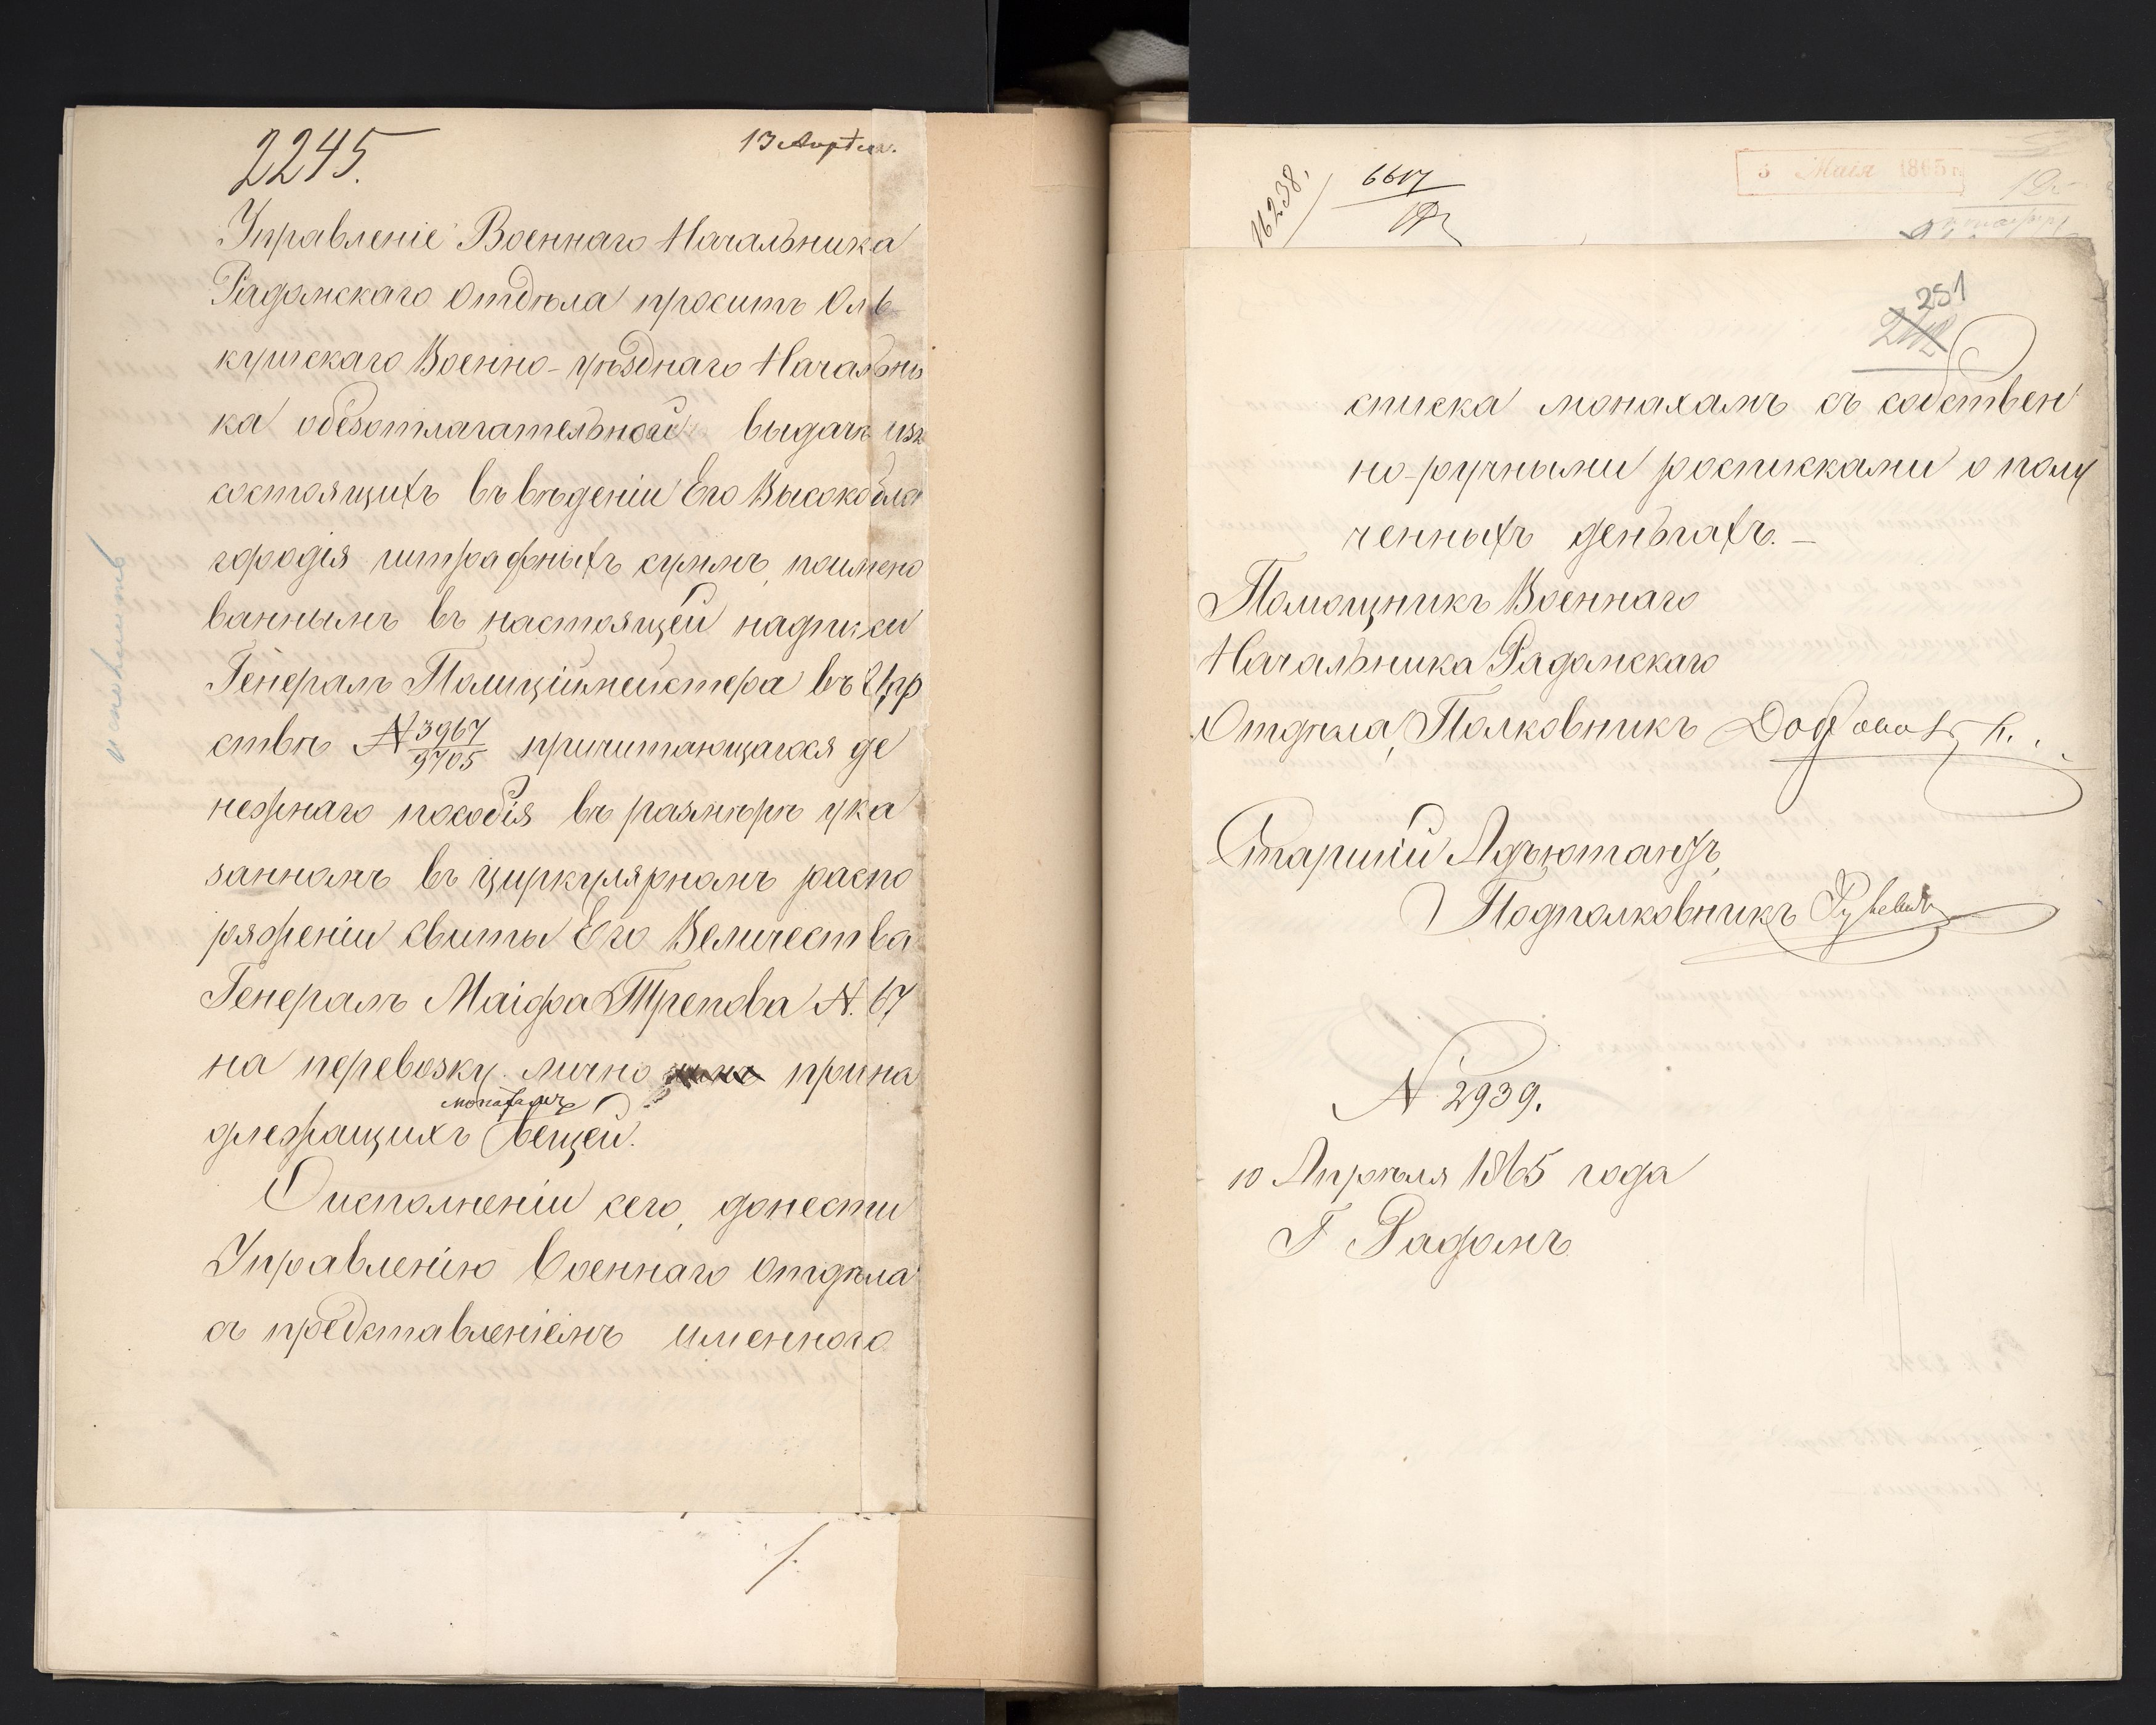 2245.
13 Апрѣля.
Управленіе Военнаго Начальника
Радомскаго Отдѣла проситъ Оль
кушскаго Военно-уѣзднаго Начальни
ка обезотлагательной выдачѣ изъ
состоящихъ въ вѣденіи Его Высокобла
городія штрафныхъ суммъ, поимено
ваннымъ въ настоящей надписи
Генералъ Полиціймейстера въ Цар
ствѣ № 3967/9705 причитающагося де
нежнаго пособія въ размѣрѣ ука
занномъ въ циркулярномъ распо
ряженіи свиты Его Величества
Генералъ Маіора Трепова №. 67
на перевозку лично прина
монахамъ
длежащихъ вещей.
О исполненіи сего, донести
Управленію Военнаго Отдѣла
съ представленіемъ именного
16238.
6617
3 Маія 1865 г.
251
списка монахамъ съ собствен
но-ручными росписками о полу
ченныхъ деньгахъ. —
Помощникъ Военнаго
Начальника Радомскаго
Отдѣла, Полковникъ
Старшій Адъютантъ,
Подполковникъ
№ 2939.
10 Апрѣля 1865 года
Г Радомъ